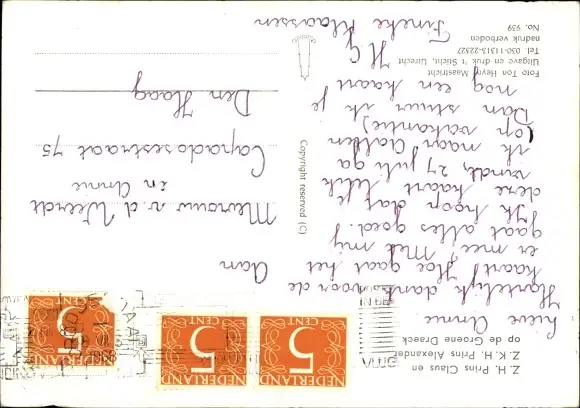 Z. K. H. Prins Claus en
Z. K. H. Prins Alexander
op de Groene Draeck
Lieve Annie
Hartelijk dank voor de
kaart! Hoe gaat het
er mee, Met mij
gaat alles goed!
Ik hoop dat je
deze kaart leuk
vindt, 27 juli ga
ik naar Aalten
(op vakantie)
Dan stuur ik je
nog een kaart
Fineke Klaassen
Foto Ton Heyng Maastricht
Uitgave en druk 't Sticht, Utrecht
Tel. 030-11313-22527
nadruk verboden
No. 939
Copyright reserved (C)
NEDERLAND
5
CENT
NEDERLAND
5
CENT
NEDERLAND
5
CENT
Aan
Mevrouw v. d. Weerdt
en Annie
Capadosestraat 75
Den Haag